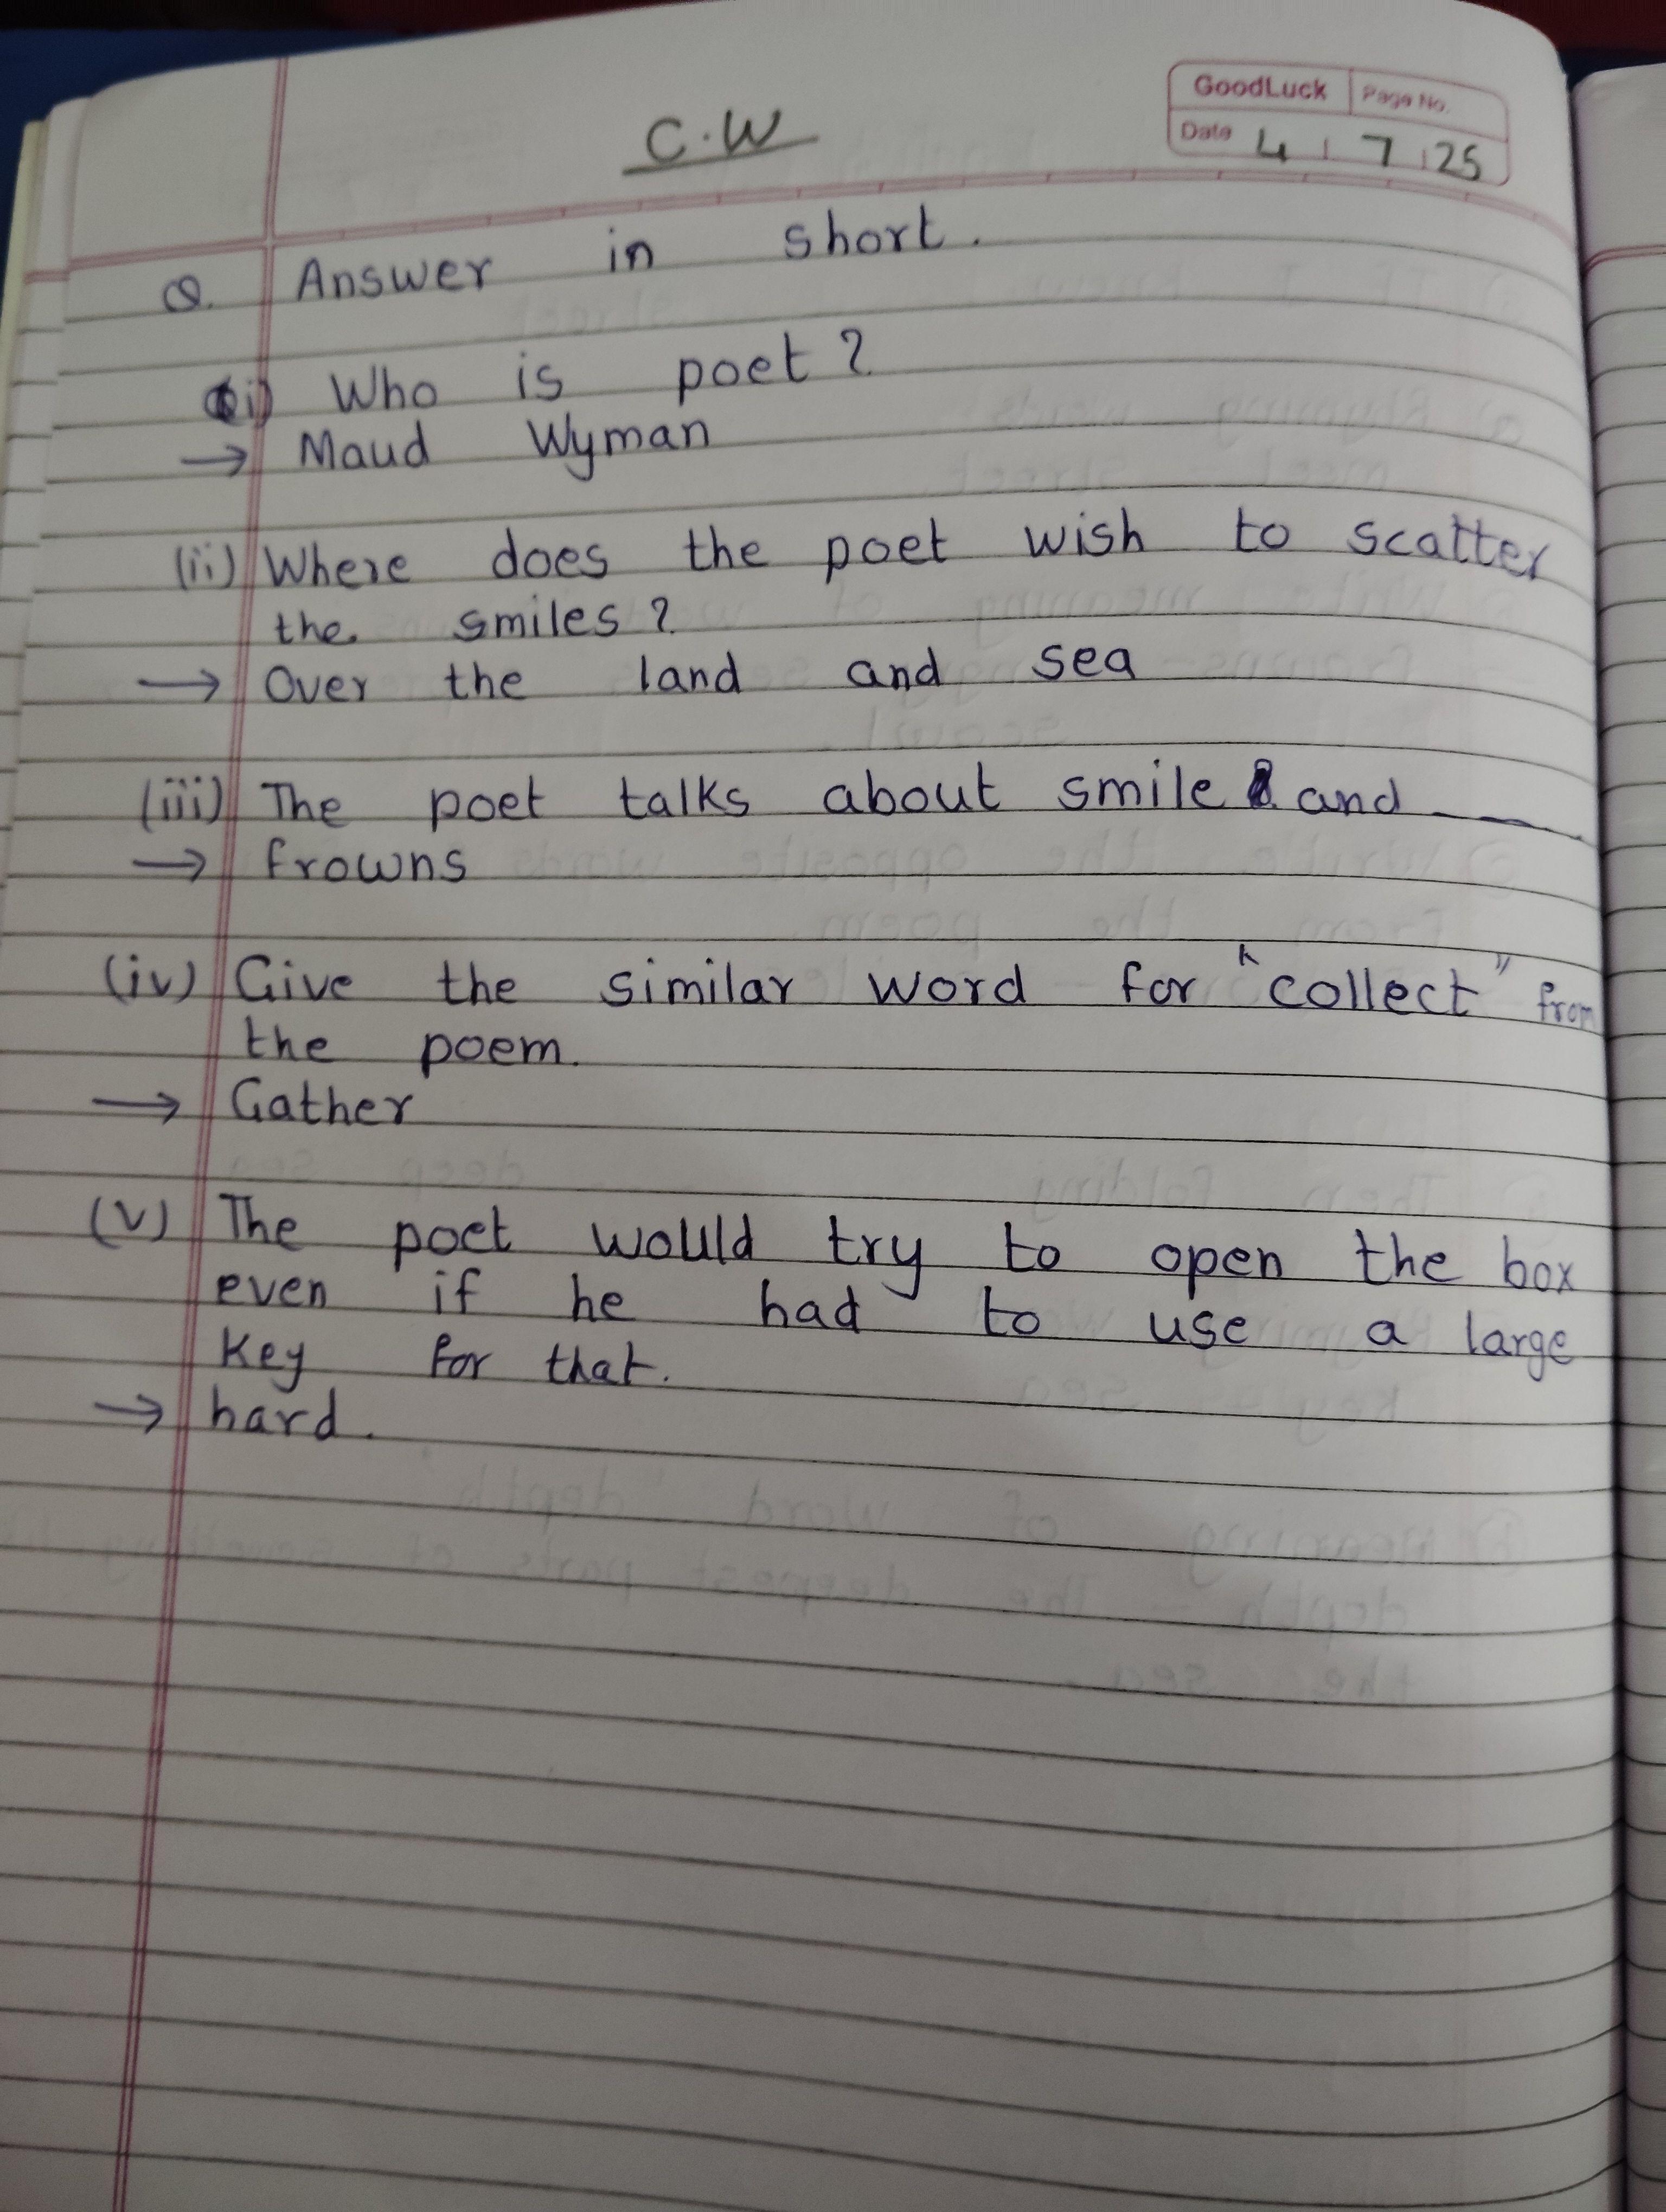 GoodLuck Page No.
Date 4 7 25
C.W
Q. Answer in short.
(i) Who is poet?
→ Maud Wyman
(ii) Where does the poet wish to scatter
the smiles?
→ Over the land and sea
(iii) The poet talks about smile and ___
→ frowns
(iv) Give the similar word for "collect" from
the poem.
→ Gather
(v) The poet would try to open the box
even if he had to use a large
key for that.
→ hard.